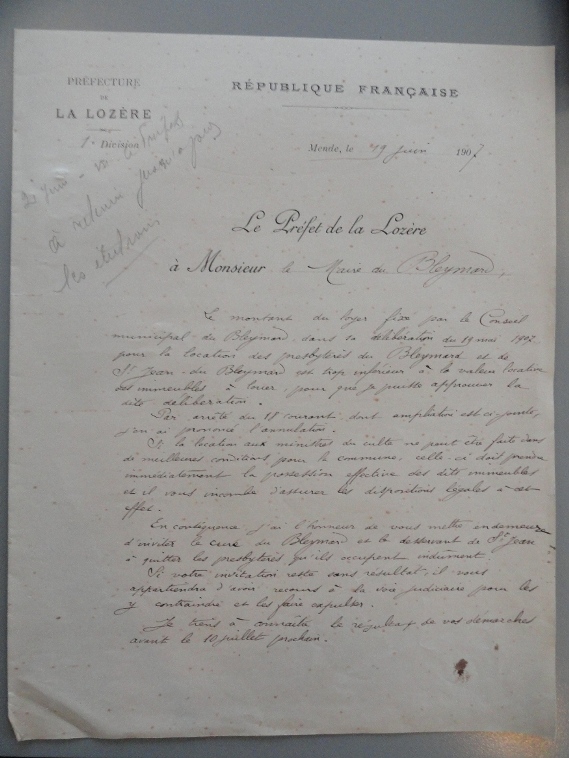 PRÉFECTURE
DE
LA LOZÈRE
1e Division
RÉPUBLIQUE FRANÇAISE
Mende, le 19 juin 1907
à jours
les
Le Préfet de la Lozère
à Monsieur le Maire du Bleymard,
Le montant du loyer fixé par le Conseil
municipal du Bleymard dans sa délibération du 19 mai 1907
pour la location des presbytères du Bleymard et de
St Jean du Bleymard est trop inférieur à la valeur locative
des immeubles à louer, pour que je puisse approuver la
dite délibération.
Par arrêté du 18 courant dont ampliation est ci-jointe,
j'en ai prononcé l'annulation.
Si la location aux ministres du culte ne peut être faite dans
de meilleures conditions pour la commune, celle-ci doit prendre
immédiatement la possession effective des dits immeubles
et il vous incombe d'assurer les dispositions légales à cet
effet.
En conséquence, j'ai l'honneur de vous mettre en demeure
d'inviter le curé du Bleymard et le desservant de St Jean
à quitter les presbytères qu'ils occupent indûment.
Si votre invitation reste sans résultat, il vous
appartiendra d'avoir recours à la voie judiciaire pour les
y contraindre et les faire expulser.
Je tiens à connaître le résultat de vos démarches
avant le 10 juillet prochain.